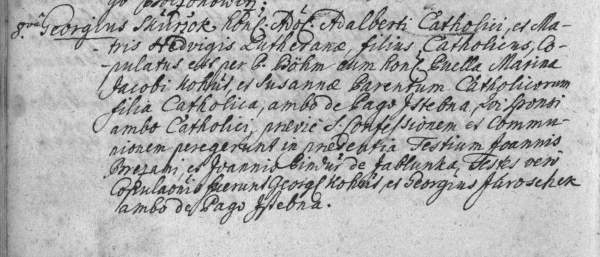 8va Georgius Skurzok hon: Adol: Adalberti Catholici, et Ma-
tris Hedvigis Lutheranæ, filius Catholicus, Co-
pulatus est per P. Böhm cum hon: Puella Marina
Jacobi Kohut, et Susannæ Parentum Catholicorum
filia Catholica, ambo de Pago Istebna, Loi sponsi
ambo Catholici, præviè S. Confessionem et Commu-
nionem peregerunt in præsentia Testium Joannis
et Joannis de Jablunka, Testes verò
Copulaõnis fuerunt Georg: Kohut, et Georgius Juroschek
ambo de Pago Istebna.